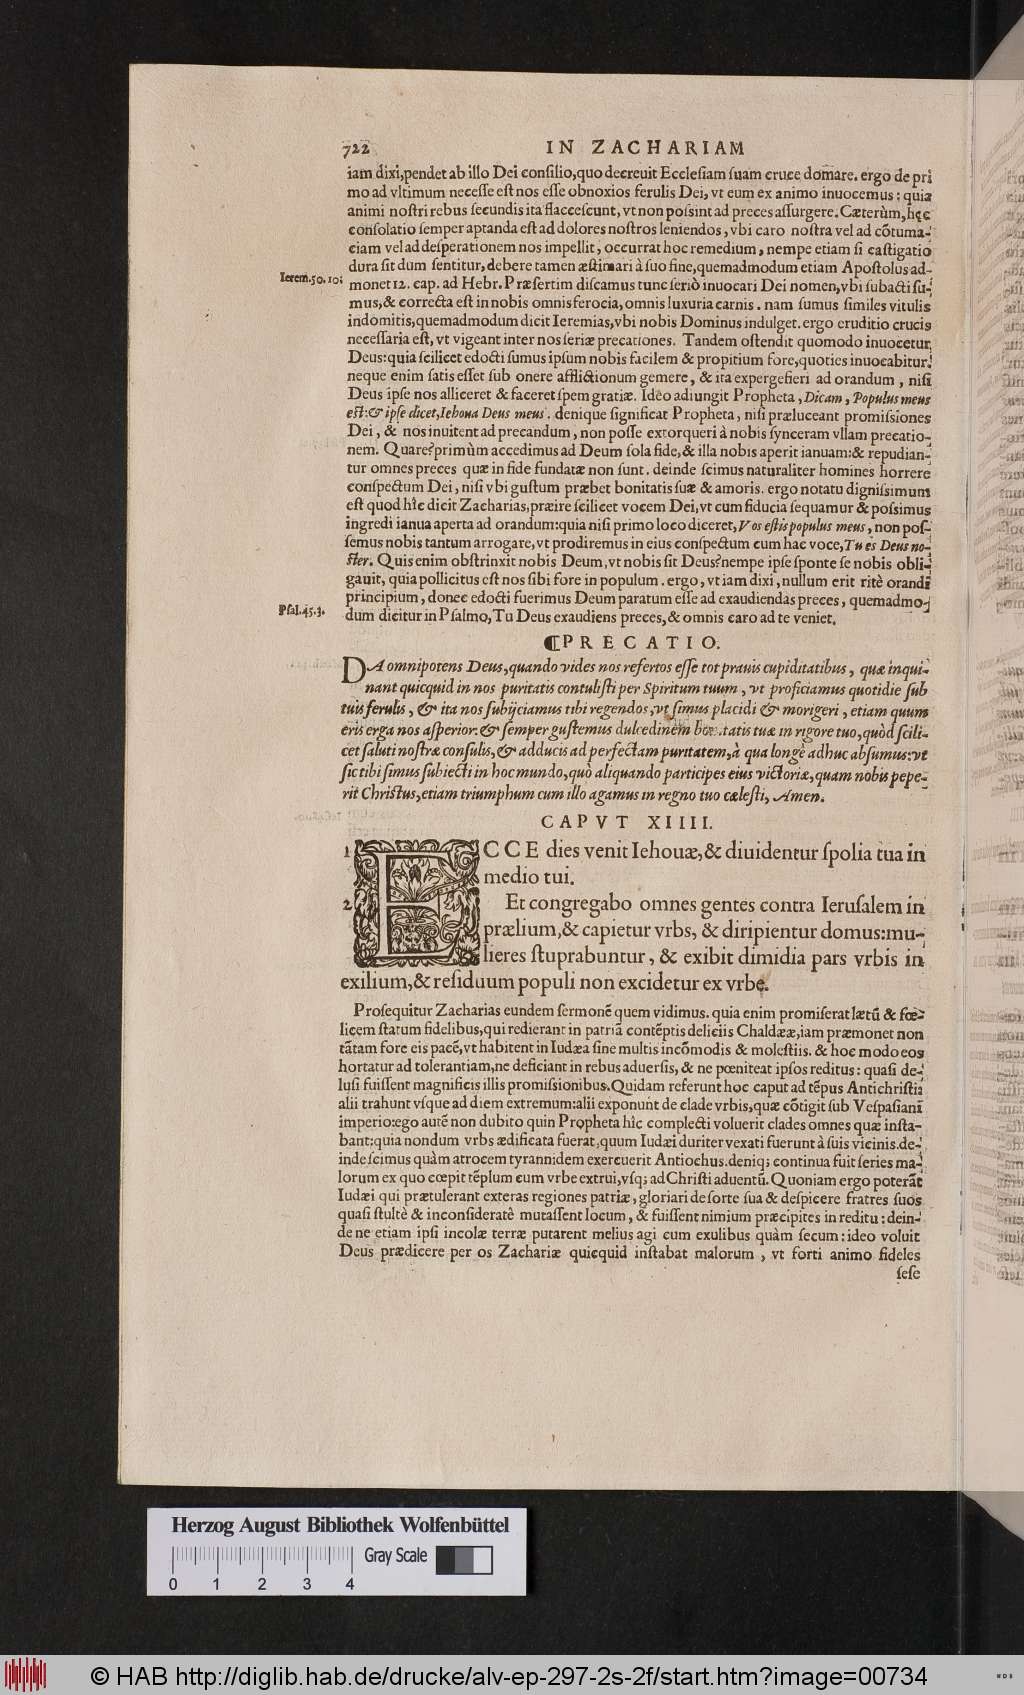 722 IN ZACHARIAM
iam dixi,pendet ab illo Dei consilio,quo decreuit Ecclesiam suam cruce domare. ergo de pri
mo ad vltimum necesse est nos esse obnoxios ferulis Dei, vt eum ex animo inuocemus : quia
animi nostri rebus secundis ita flaccescunt, vt non possint ad preces assurgere. Cæterùm, hęc
consolatio semper aptanda est ad dolores nostros leniendos , vbi caro nostra vel ad cōtuma-
ciam vel ad desperationem nos impellit , occurrat hoc remedium , nempe etiam si castigatio
dura sit dum sentitur, debere tamen æstimari à suo fine,quemadmodum etiam Apostolus ad-
Ierem.50.10;
monet 12. cap. ad Hebr. Præsertim discamus tunc seriò inuocari Dei nomen,vbi subacti su-
mus,& correcta est in nobis omnis ferocia,omnis luxuria carnis . nam sumus similes vitulis
indomitis,quemadmodum dicit Ieremias,vbi nobis Dominus indulget. ergo eruditio crucis
necessaria est, vt vigeant inter nos seriæ precationes. Tandem ostendit quomodo inuocetur
Deus:quia scilicet edocti sumus ipsum nobis facilem & propitium fore,quoties inuocabitur.
neque enim satis esset sub onere afflictionum gemere , & ita expergefieri ad orandum , nisi
Deus ipse nos alliceret & faceret spem gratiæ. Ideo adiungit Propheta , Dicam , Populus meus
est:& ipse dicet,Iehoua Deus meus . denique significat Propheta , nisi præluceant promissiones
Dei , & nos inuitent ad precandum , non posse extorqueri à nobis synceram vllam precatio-
nem. Quare? primùm accedimus ad Deum sola fide, & illa nobis aperit ianuam:& repudian-
tur omnes preces quæ in fide fundatæ non sunt. deinde scimus naturaliter homines horrere
conspectum Dei , nisi vbi gustum præbet bonitatis suæ & amoris. ergo notatu dignissimum
est quod hîc dicit Zacharias,præire scilicet vocem Dei, vt cum fiducia sequamur & possimus
ingredi ianua aperta ad orandum:quia nisi primo loco diceret, Vos estis populus meus , non pos-
semus nobis tantum arrogare, vt prodiremus in eius conspectum cum hac voce, Tu es Deus no-
ster. Quis enim obstrinxit nobis Deum, vt nobis sit Deus? nempe ipse sponte se nobis obli-
gauit, quia pollicitus est nos sibi fore in populum . ergo , vt iam dixi , nullum erit ritè orandi
principium , donec edocti fuerimus Deum paratum esse ad exaudiendas preces , quemadmo-
Psal.45.3.
dum dicitur in Psalmo, Tu Deus exaudiens preces,& omnis caro ad te veniet.
¶PRECATIO.
DA omnipotens Deus,quando vides nos refertos esse tot prauis cupiditatibus , quæ inqui-
nant quicquid in nos puritatis contulisti per Spiritum tuum , vt proficiamus quotidie sub
tuis ferulis , & ita nos subijciamus tibi regendos,vt simus placidi & morigeri , etiam quum
eris erga nos asperior:& semper gustemus dulcedinem bon.tatis tuæ in rigore tuo,quòd scili-
cet saluti nostræ consulis,& adducis ad perfectam puritatem,à qua longè adhuc absumus:vt
sic tibi simus subiecti in hoc mundo,quò aliquando participes eius victoriæ,quam nobis pepe-
rit Christus,etiam triumphum cum illo agamus in regno tuo cælesti, Amen.
CAPVT XIIII.
1 ECCE dies venit Iehouæ,& diuidentur spolia tua in
medio tui.
2 Et congregabo omnes gentes contra Ierusalem in
prælium,& capietur vrbs, & diripientur domus:mu-
lieres stuprabuntur , & exibit dimidia pars vrbis in
exilium,& residuum populi non excidetur ex vrbe.
Prosequitur Zacharias eundem sermonē quem vidimus. quia enim promiserat lætū & fœ-
licem statum fidelibus,qui redierant in patriā contēptis deliciis Chaldææ,iam præmonet non
tātam fore eis pacē,vt habitent in Iudæa sine multis incōmodis & molestiis. & hoc modo eos
hortatur ad tolerantiam,ne deficiant in rebus aduersis, & ne pœniteat ipsos reditus : quasi de-
lusi fuissent magnificis illis promissionibus. Quidam referunt hoc caput ad tēpus Antichristi:
alii trahunt vsque ad diem extremum:alii exponunt de clade vrbis,quæ cōtigit sub Vespasiani
imperio:ego autē non dubito quin Propheta hîc complecti voluerit clades omnes quæ insta-
bant:quia nondum vrbs ædificata fuerat,quum Iudæi duriter vexati fuerunt à suis vicinis.de-
inde scimus quàm atrocem tyrannidem exercuerit Antiochus.deniq; continua fuit series ma-
lorum ex quo cœpit tēplum cum vrbe extrui,vsq; ad Christi aduentū. Quoniam ergo poterāt
Iudæi qui prætulerant exteras regiones patriæ, gloriari de sorte sua & despicere fratres suos
quasi stultè & inconsideratè mutassent locum , & fuissent nimium præcipites in reditu : dein-
de ne etiam ipsi incolæ terræ putarent melius agi cum exulibus quàm secum : ideo voluit
Deus prædicere per os Zachariæ quicquid instabat malorum , vt forti animo fideles
sese
Herzog August Bibliothek Wolfenbüttel
Gray Scale
0 1 2 3 4
© HAB http://diglib.hab.de/drucke/alv-ep-297-2s-2f/start.htm?image=00734